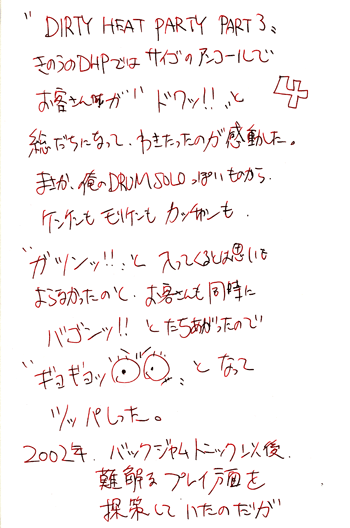 "DIRTY HEAT PARTY PART3〟
きのうのDHPではサイゴのアンコールで
お客さん味が"ドワッ!!〟と
4
総だちになって、わきたったのが感動した。
まさか、俺のDRUM SOLOっぽいものから、
ケンケンも モリケンも カッチャンも、
"ガツンッ!!〟と 入ってくるとは思いも
よらなかったのと、お客さんも同時に
バゴンッ!! とたちあがったので
"ギョギョッ 〟と なって
ツッパしった。
2002年、バックジャムトニック以後、
難解なるプレイ方面を
探策していたのだが